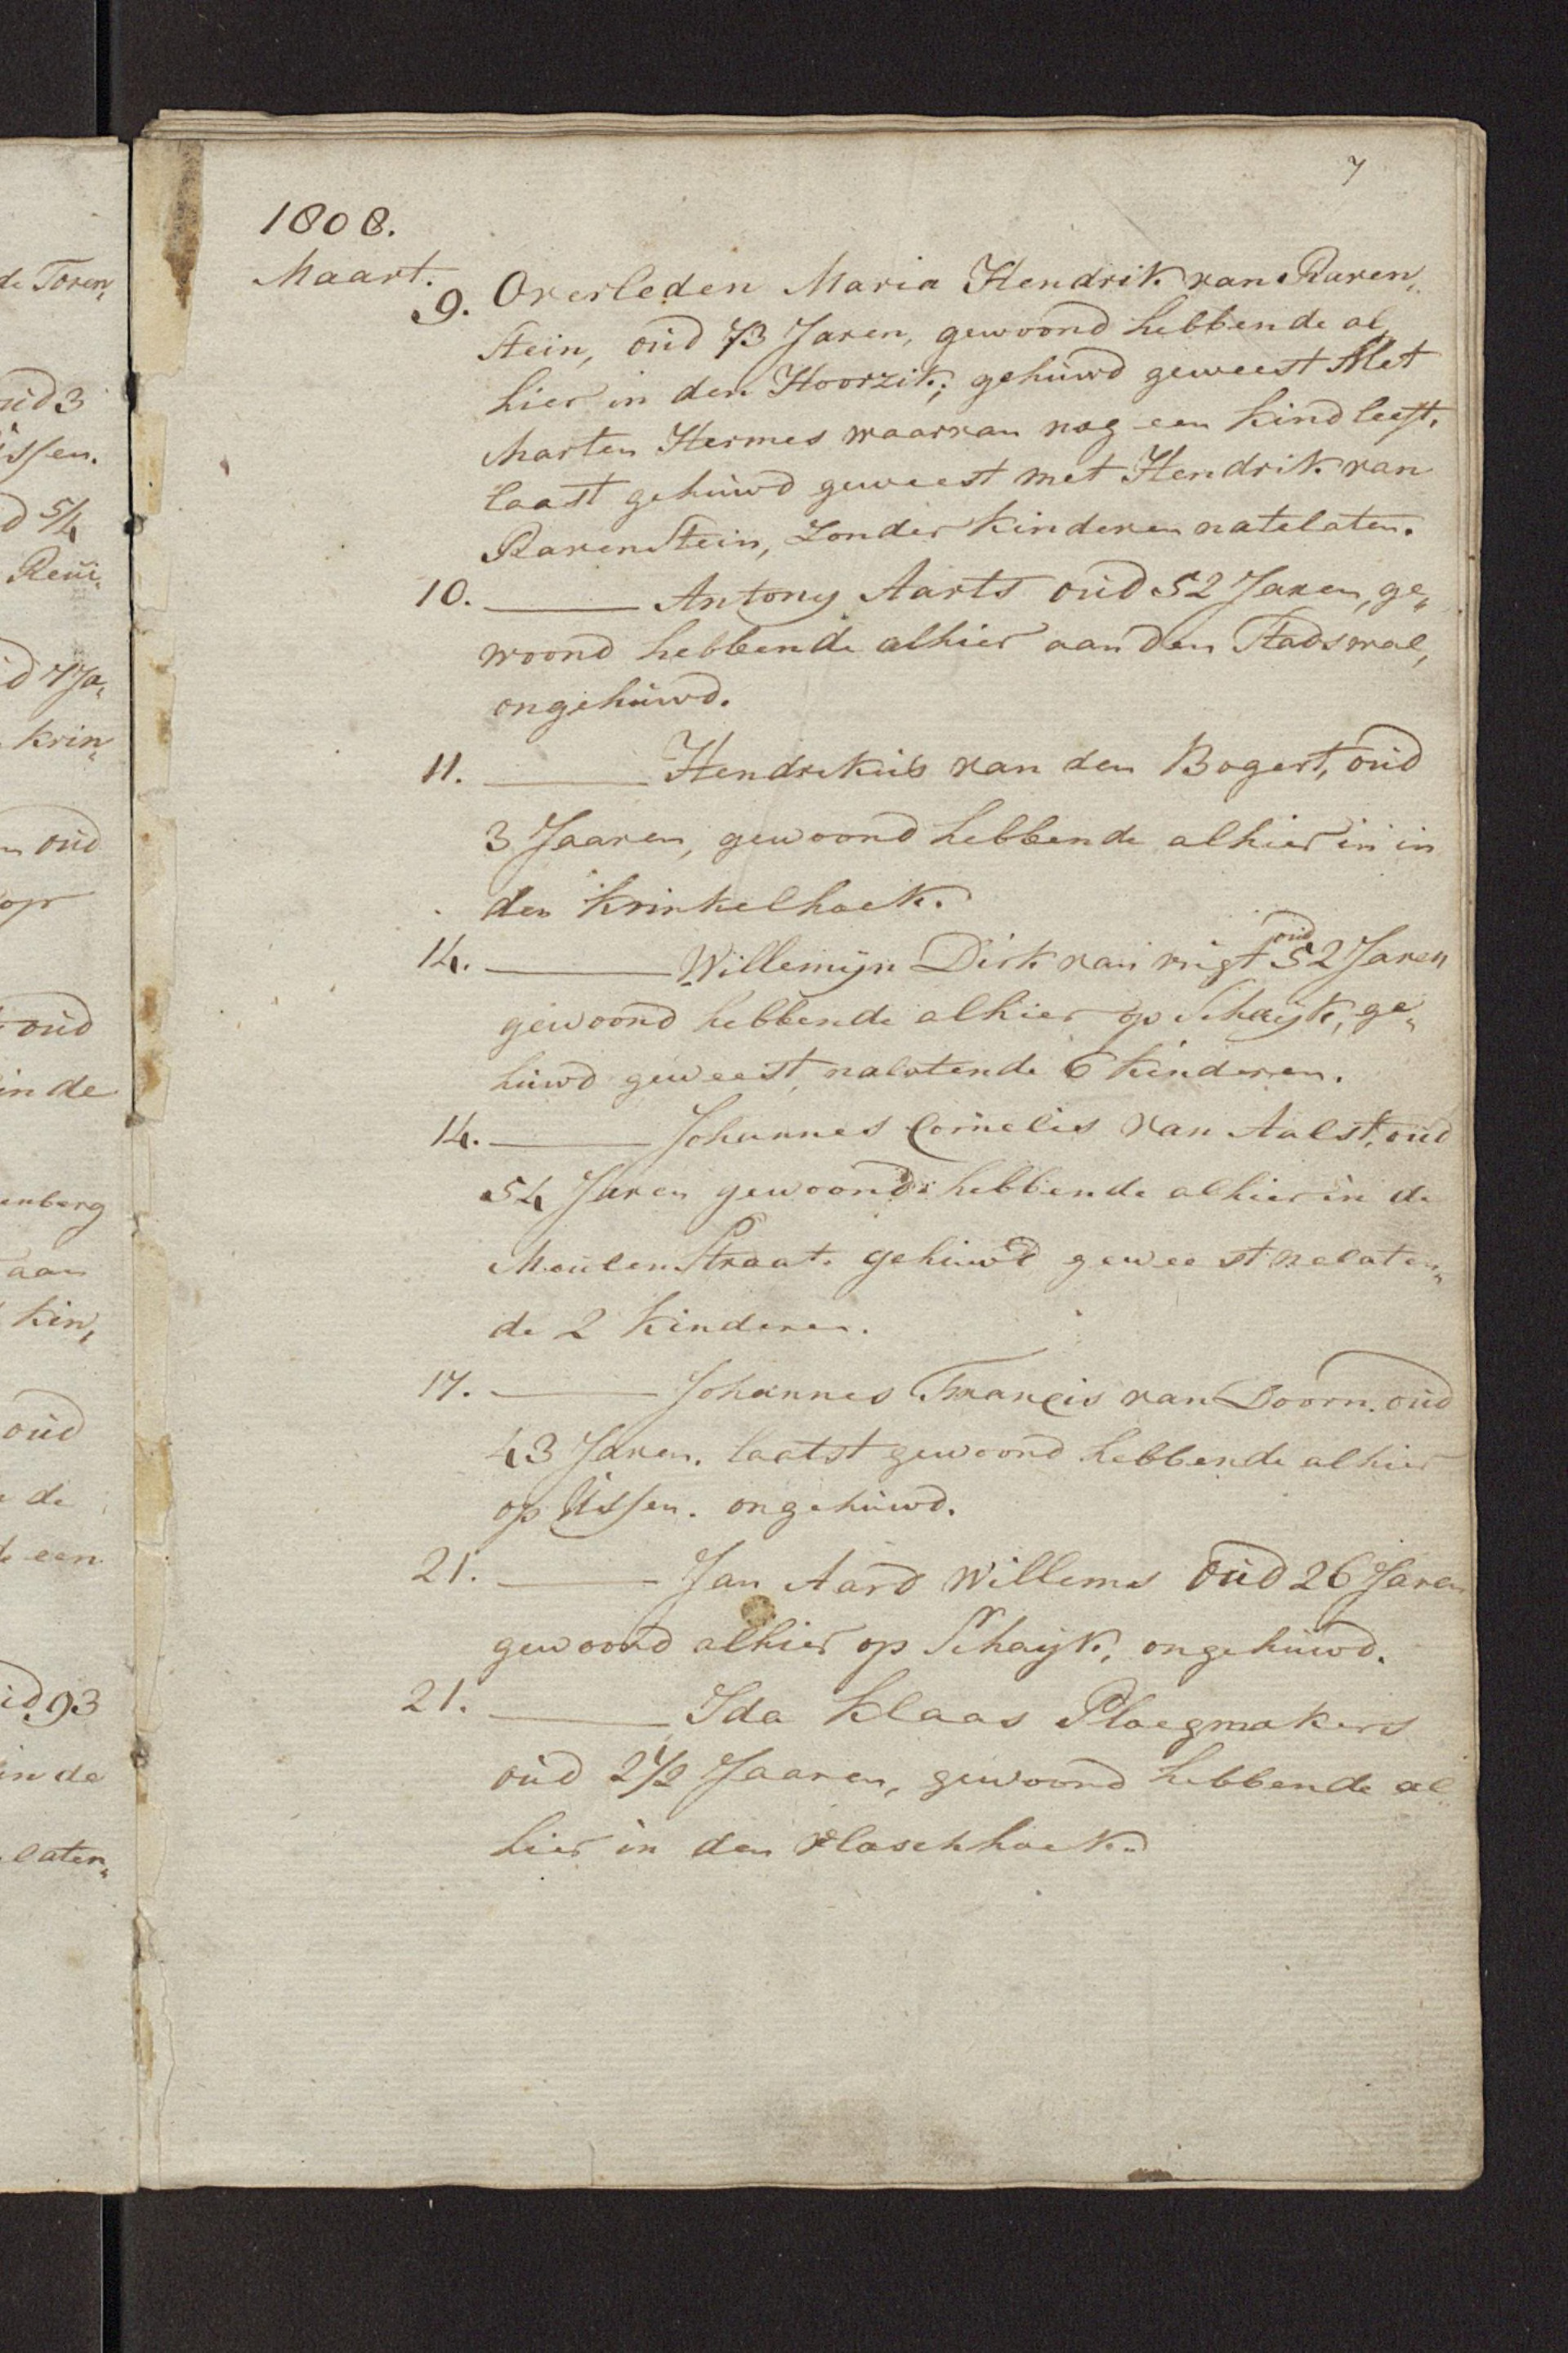 7
1808.
Maart.
9. Overleden Maria Hendrik van Raven„
Stein, oud 73 Jaren, gewoond hebbende al„
hier in den Hoorzik; gehuwd geweest Met
Marten Hermes waarvan nog een kind leeft.
laast gehuwd geweest met Hendrik van
RavenStein, Zonder kinderen natelaten.
10. ——— Antony Aarts oud 52 Jaren, ge„
woond hebbende alhier aan den Stadswal,
ongehuwd.
11. ——— Hendrikus van den Bogert, oud
3 Jaaren, gewoond hebbende alhier in in
den Krinkelhoek.
14. ——— Willemijn Dirk van vugt oud 52 Jaren
gewoond hebbende alhier op Schaijk, ge„
huwd geweest, nalatende 6 kinderen.
14. ——— Johannes Cornelis van Aalst, oud
54 Jaren gewoond hebbende alhier in de
MeulenStraat. gehuwd geweest nalaten„
de 2 kinderen.
17. ——— Johannes Francis van Doorn. oud
43 Jaren. laatst gewoond hebbende alhier
op Ussen. ongehuwd.
21. ——— Jan Aard Willems oud 26 Jaren
gewoond alhier op Schaijk, ongehuwd.
21. ——— Ida Klaas Ploegmakers
oud 2 1/2 Jaaren, gewoond hebbende al„
hier in den vlaschhoek.